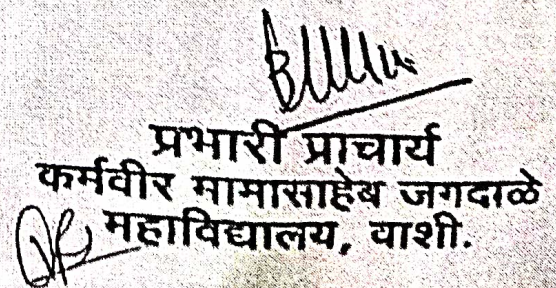 प्रभारी प्राचार्य
कर्मवीर मामासाहेब जगदाळे
महाविद्यालय, वाशी.